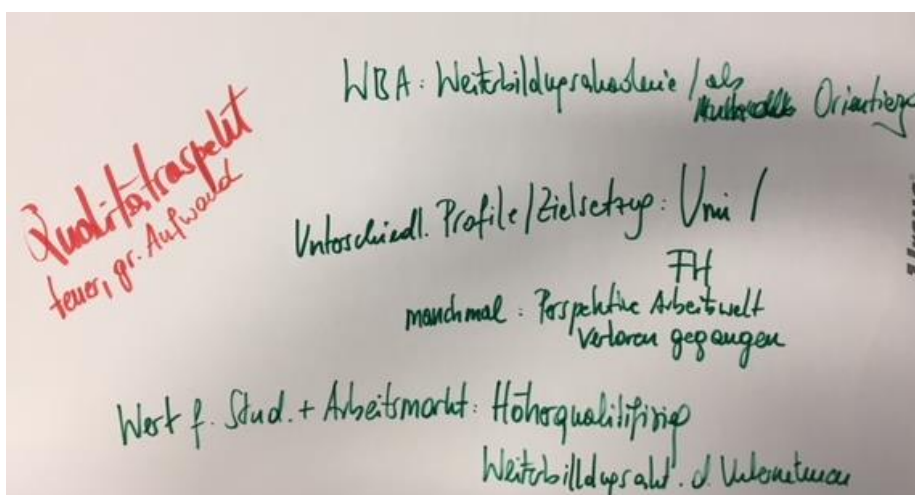 Qualitätsaspekt
teuer, gr. Aufwand
WBA: Weiterbildungsakademie / als
Orientierg
Unterschiedl. Profile / Zielsetzug: Uni /
FH
manchmal: Perspektive Arbeitswelt
verloren gegangen
Wert f. Stud. + Arbeitsmarkt:
Weiterbilldugsakt. d. Unternehmen